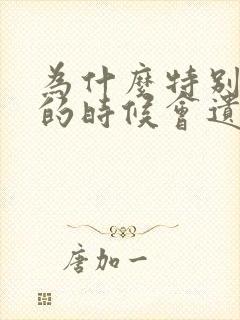 為什麼特別
的時候會遺
唐加一